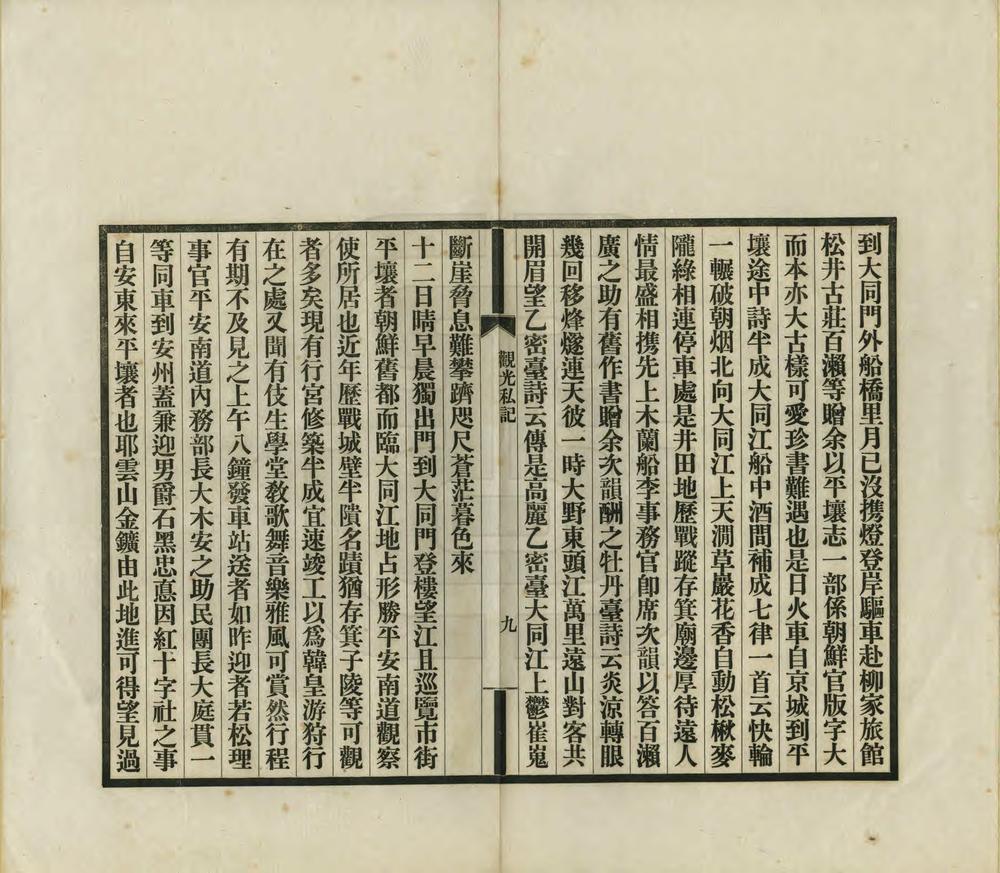 到大同門外船橋里月已沒携燈登岸驅車赴柳家旅館
松井古莊百瀨等贈余以平壤志一部係朝鮮官版字大
而本亦大古樣可愛珍書難遇也是日火車自京城到平
壤途中詩半成大同江船中酒間補成七律一首云快輪
一輾破朝烟北向大同江上天澗草巖花香自動松楸麥
隴綠相連停車處是井田地歷戰蹤存箕廟邊厚待遠人
情最盛相携先上木蘭船李事務官卽席次韻以答百瀨
廣之助有舊作書贈余次韻酬之牡丹臺詩云炎涼轉眼
幾回移烽燧連天彼一時大野東頭江萬里遠山對客共
開眉望乙密臺詩云傳是高麗乙密臺大同江上鬱崔嵬
觀光私記
九
斷崖脅息難攀躋咫尺蒼茫暮色來
十二日晴早晨獨出門到大同門登樓望江且巡覽市街
平壤者朝鮮舊都而臨大同江地占形勝平安南道觀察
使所居也近年歷戰城壁半隤名蹟猶存箕子陵等可觀
者多矣現有行宮修築半成宜速竣工以爲韓皇游狩行
在之處又聞有伎生學堂敎歌舞音樂雅風可賞然行程
有期不及見之上午八鐘發車站送者如昨迎者若松理
事官平安南道內務部長大木安之助民團長大庭貫一
等同車到安州蓋兼迎男爵石黑忠悳因紅十字社之事
自安東來平壤者也耶雲山金鑛由此地進可得望見過